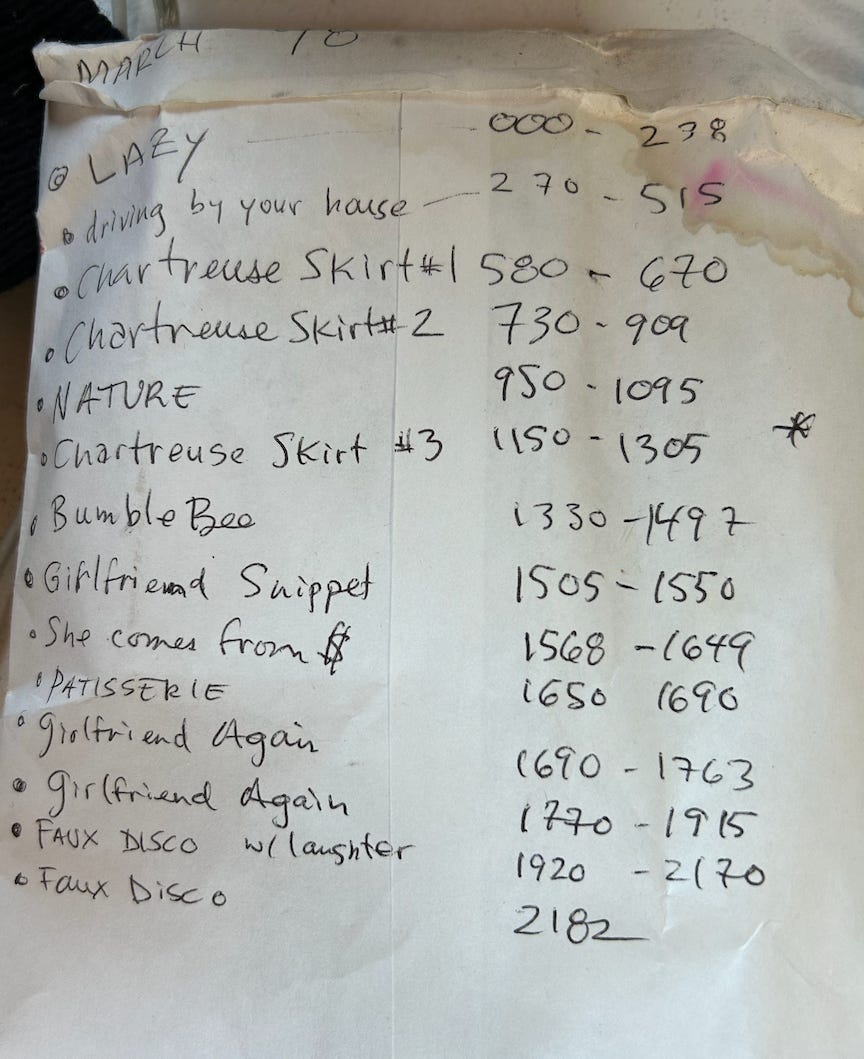 MARCH 10
LAZY 000 - 238
driving by your house 270 - 515
Chartreuse Skirt #1 580 - 670
Chartreuse Skirt # 2 730 - 909
NATURE 950 - 1095
Chartreuse Skirt #3 1150 - 1305 *
Bumble Bee 1330 - 1497
Girlfriend Snippet 1505 - 1550
She comes from $ 1568 - 1649
PATISSERIE 1650 1690
Girlfriend Again 1690 - 1763
Girlfriend Again 1770 - 1915
FAUX DISCO w/ laughter 1920 - 2170
Faux Disco 2182